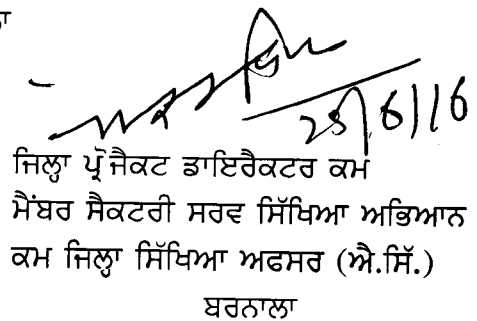 ਲਾ
28/6/16
ਜਿਲ੍ਹਾ ਪ੍ਰੋਜੈਕਟ ਡਾਇਰੈਕਟਰ ਕਮ
ਮੈਂਬਰ ਸੈਕਟਰੀ ਸਰਵ ਸਿੱਖਿਆ ਅਭਿਆਨ
ਕਮ ਜਿਲ੍ਹਾ ਸਿੱਖਿਆ ਅਫਸਰ (ਐ.ਸਿੱ.)
ਬਰਨਾਲਾ